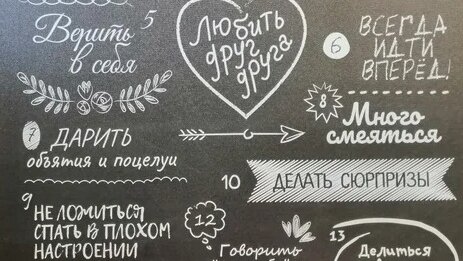 Верить 5
в себя
Любить
друг
друга
6
ВСЕГДА
ИДТИ
ВПЕРЁД!
7 ДАРИТЬ
объятия и поцелуи
8
Много
смеяться
9
НЕ ЛОЖИТЬСЯ
СПАТЬ В ПЛОХОМ
НАСТРОЕНИИ
10 ДЕЛАТЬ СЮРПРИЗЫ
12
Говорить
13
Делиться